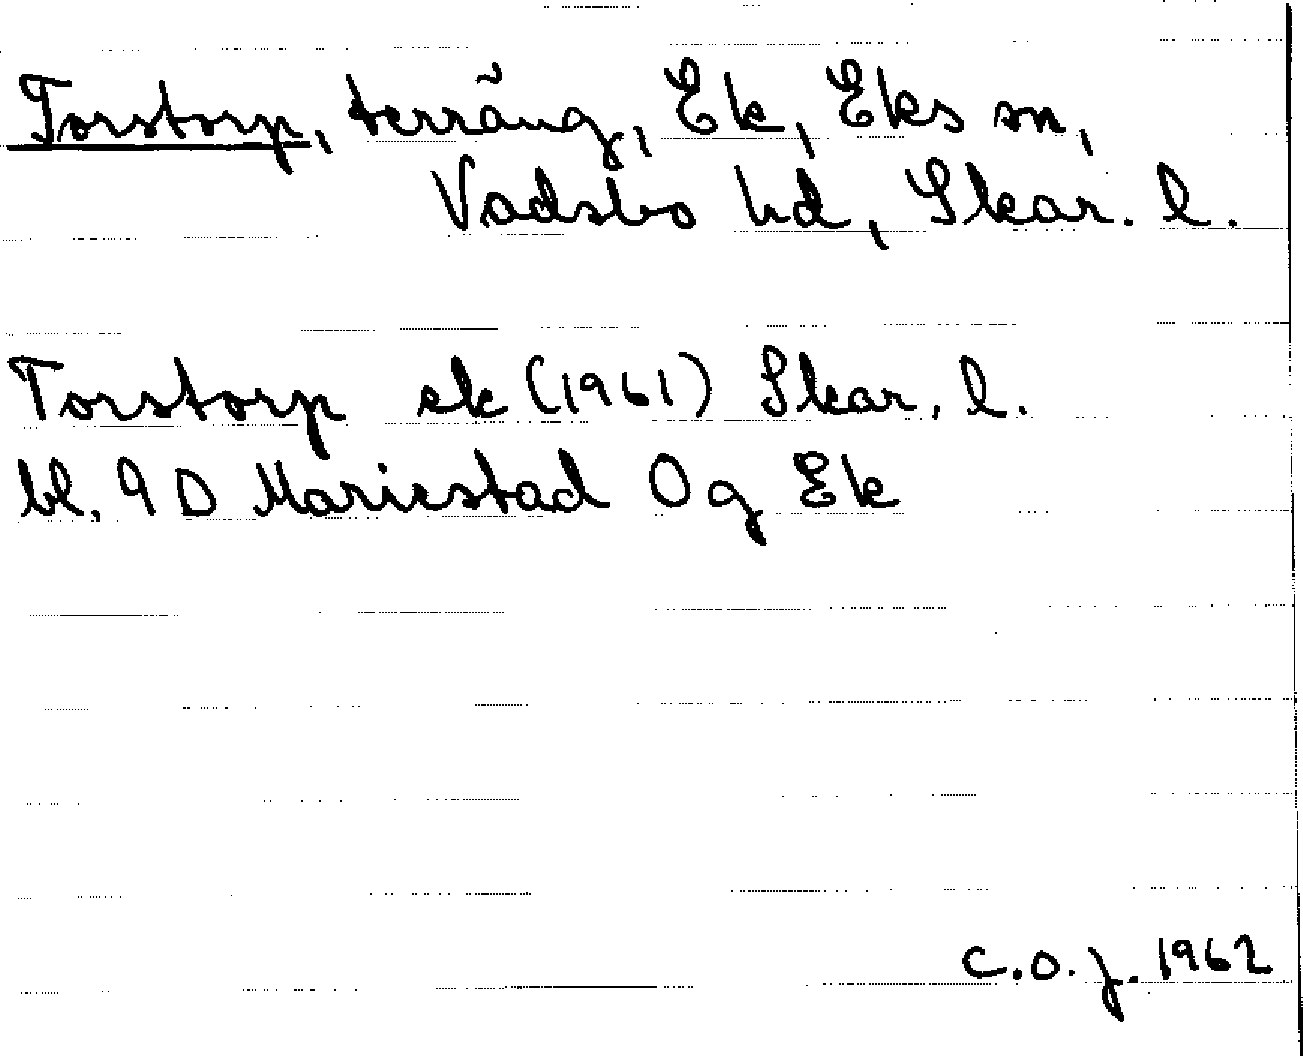 Torstorp, terräng, Ek, Eks sn,
Vadsbo hd, Skar. l.
Torstorp ek (1961) Skar. l.
bl. 9 D Mariestad Og Ek
C.O.J. 1962